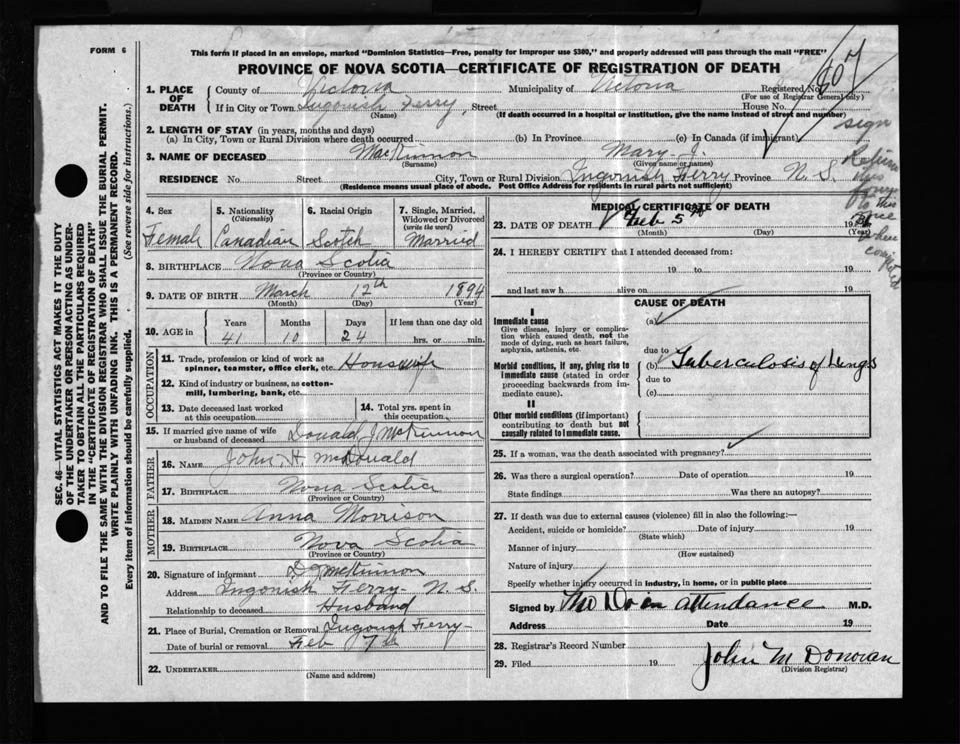 FORM 6
This form if placed in an envelope, marked "Dominion Statistics—Free, penalty for improper use $300," and properly addressed will pass through the mail "FREE"
PROVINCE OF NOVA SCOTIA—CERTIFICATE OF REGISTRATION OF DEATH
607
SEC. 46—VITAL STATISTICS ACT MAKES IT THE DUTY
OF THE UNDERTAKER OR PERSON ACTING AS UNDER-
TAKER TO OBTAIN ALL THE PARTICULARS REQUIRED
IN THE "CERTIFICATE OF REGISTRATION OF DEATH"
AND TO FILE THE SAME WITH THE DIVISION REGISTRAR WHO SHALL ISSUE THE BURIAL PERMIT.
WRITE PLAINLY WITH UNFADING INK. THIS IS A PERMANENT RECORD.
Every item of information should be carefully supplied. (See reverse side for Instructions.)
1. PLACE OF DEATH
County of Victoria Municipality of Victoria Registered No.
(For use of Registrar General only)
If in City or Town Ingonish Ferry, Street House No.
(Name) (If death occurred in a hospital or institution, give the name instead of street and number)
2. LENGTH OF STAY (in years, months and days)
(a) In City, Town or Rural Division where death occurred (b) In Province (c) In Canada (if immigrant)
3. NAME OF DECEASED MacKinnon Mary J.
(Surname) (Given name or names)
RESIDENCE No. Street City, Town or Rural Division Ingonish Ferry Province N.S.
(Residence means usual place of abode. Post Office Address for residents in rural parts not sufficient)
sign
to this
when
4. Sex
Female
5. Nationality
(Citizenship)
Canadian
6. Racial Origin
Scotch
7. Single, Married,
Widowed or Divorced
(write the word)
Married
8. BIRTHPLACE Nova Scotia
(Province or Country)
9. DATE OF BIRTH March 12th 1894
(Month) (Day) (Year)
10. AGE in
Years Months Days If less than one day old
41 10 24 hrs. or min.
OCCUPATION
11. Trade, profession or kind of work as
spinner, teamster, office clerk, etc. Housewife
12. Kind of industry or business, as cotton-
mill, lumbering, bank, etc.
13. Date deceased last worked
at this occupation
14. Total yrs. spent in
this occupation
15. If married give name of wife
or husband of deceased Donald J McKinnon
FATHER
16. NAME John H. McDonald
17. BIRTHPLACE Nova Scotia
(Province or Country)
MOTHER
18. MAIDEN NAME Anna Morrison
19. BIRTHPLACE Nova Scotia
(Province or Country)
20. Signature of informant D J McKinnon
Address Ingonish Ferry N.S.
Relationship to deceased Husband
21. Place of Burial, Cremation or Removal Ingonish Ferry
Date of burial or removal Feb 7th
22. UNDERTAKER
(Name and address)
MEDICAL CERTIFICATE OF DEATH
23. DATE OF DEATH Feb 5th 19
(Month) (Day) (Year)
24. I HEREBY CERTIFY that I attended deceased from:
19 to 19
and last saw h alive on 19
CAUSE OF DEATH
I
Immediate cause
Give disease, injury or complica-
tion which caused death, not the
mode of dying, such as heart failure,
asphyxia, asthenia, etc.
(a)
due to
Morbid conditions, if any, giving rise to
immediate cause (stated in order
proceeding backwards from im-
mediate cause).
(b) Tuberculosis of Lungs
due to
(c)
II
Other morbid conditions (if important)
contributing to death but not
causally related to immediate cause.
25. If a woman, was the death associated with pregnancy?
26. Was there a surgical operation? Date of operation 19
State findings Was there an autopsy?
27. If death was due to external causes (violence) fill in also the following:—
Accident, suicide or homicide? Date of injury 19
(State which)
Manner of injury
(How sustained)
Nature of injury
Specify whether injury occurred in industry, in home, or in public place
Signed by No Dr in attendance M.D.
Address Date 19
28. Registrar's Record Number
29. Filed 19 John M Donovan
(Division Registrar)